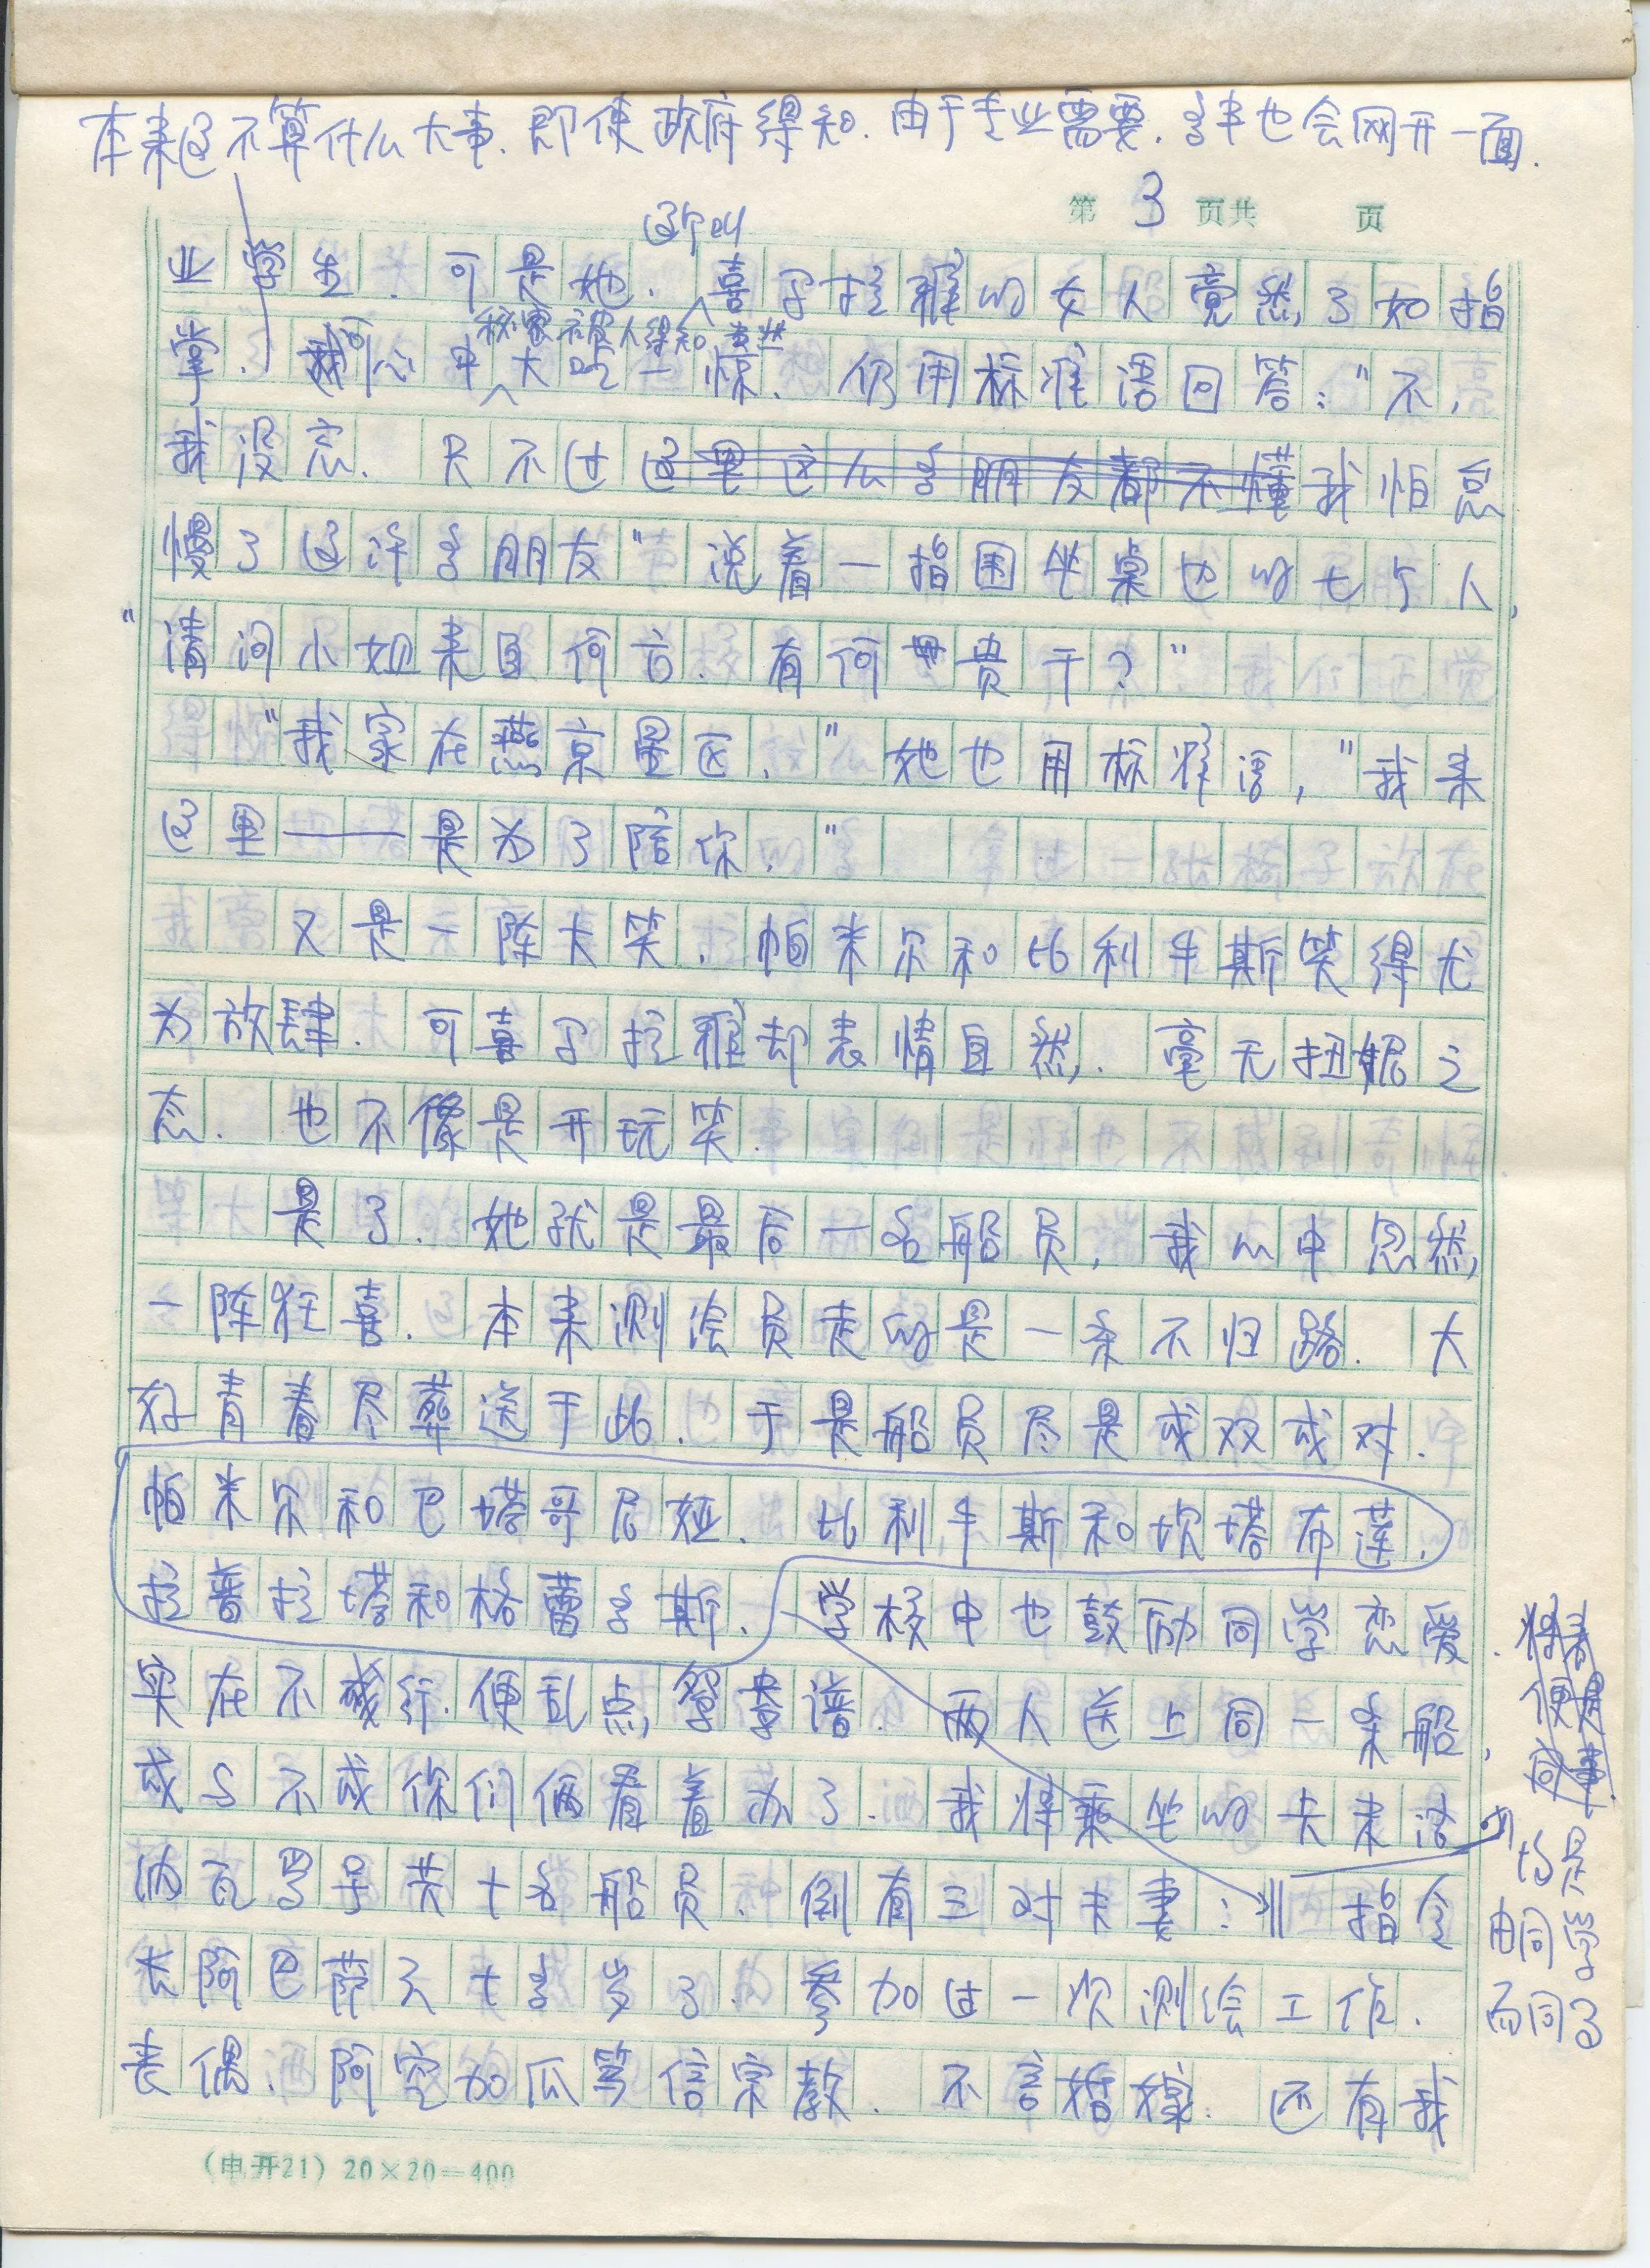 本来这不算什么大事.即使政府得知.由于专业需要.多半也会网开一面.
第 3 页共 页
这个叫
业学生.可是她.喜马拉雅的女人竟然了如指
秘密被人得知
掌.可心中大吃一惊.仍用标准语回答:"不,
我没忘.只不过这里这么多朋友都不懂我怕怠
慢了这许多朋友"说着一指围坐桌边的七个人,
"请问小姐来自何方.有何贵干?"
"我家在燕京星区."她也用标准语,"我来
这里——是为了陪你."
又是一阵大笑.帕米尔和比利牛斯笑得尤
为放肆.可喜马拉雅却表情自然.毫无扭妮之
态.也不像是开玩笑.
是了.她就是最后一名船员,我心中忽然
一阵狂喜.本来测绘员走的是一条不归路.大
好青春尽葬送于此.于是船员尽是成双成对.
帕米尔和巴塔哥尼娅.比利牛斯和坎塔布莲.
拉普拉塔和格雷多斯.学校中也鼓励同学恋爱.
实在不成行.便乱点鸳鸯谱.两人送上同一条船,
成与不成你们俩看着办了.我将乘坐的卡来洛
纳瓦罗号共十名船员.倒有三对夫妻:指令
长阿巴萨六十多岁了.参加过一次测绘工作.
丧偶.阿空加瓜笃信宗教.不言婚嫁.还有我
便是
同事.
均是
由同学
而同了
(电开21)20×20=400